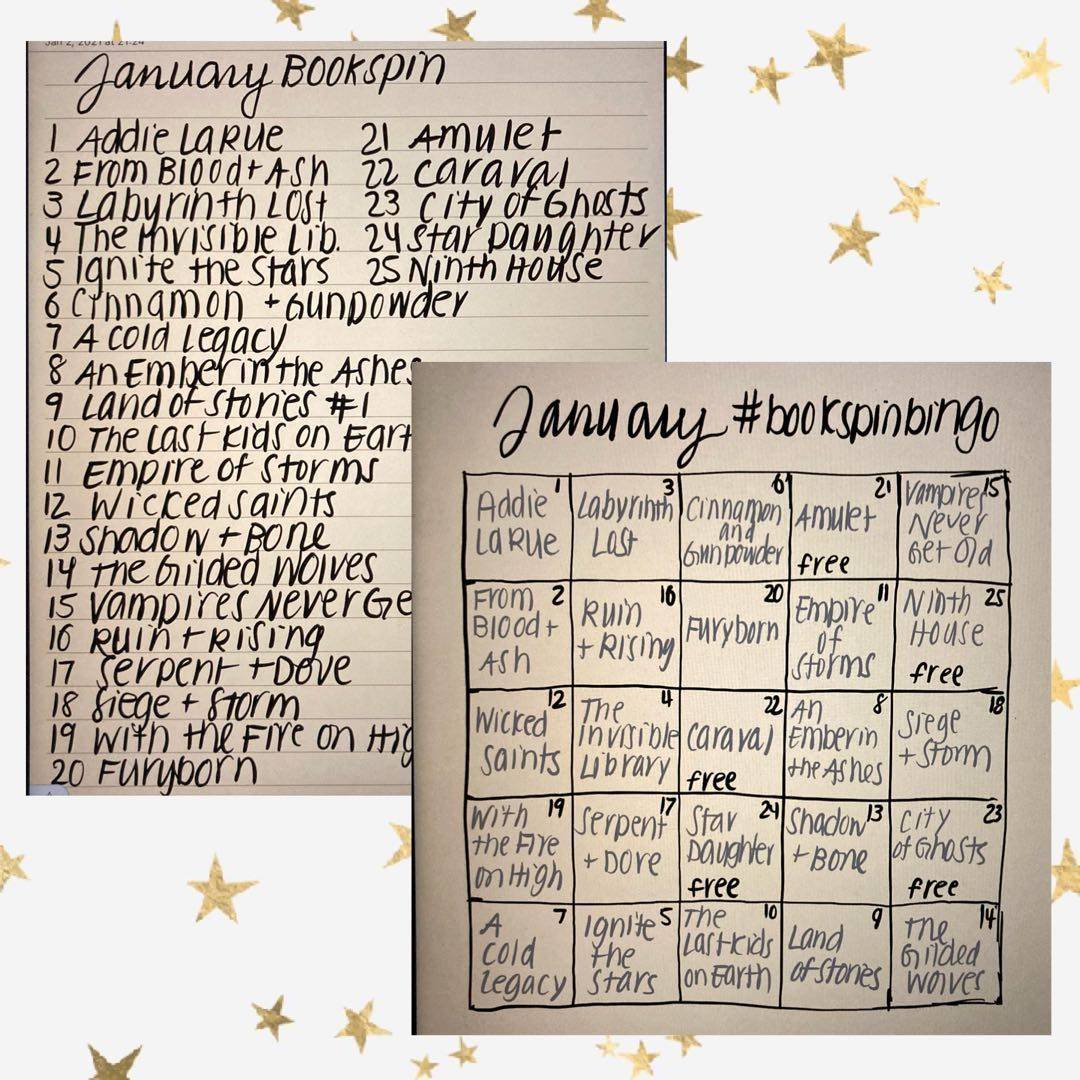 Jan 2, 2021 at 21:24
January Bookspin
1 Addie LaRue
2 From Blood + Ash
3 Labyrinth Lost
4 The Invisible Lib.
5 Ignite the Stars
6 Cinnamon + Gunpowder
7 A cold legacy
8 An Ember in the Ashes
9 Land of Stories #1
10 The Last Kids on Eart
11 Empire of Storms
12 Wicked Saints
13 Shadow + Bone
14 The Gilded Wolves
15 Vampires Never Ge
16 Ruin + Rising
17 Serpent + Dove
18 Siege + Storm
19 With the Fire on Hig
20 Furyborn
21 Amulet
22 Caraval
23 City of Ghosts
24 Star Daughter
25 Ninth House
January #bookspinbingo
1
Addie
LaRue
3
Labyrinth
Lost
6
Cinnamon
and
Gunpowder
21
Amulet
free
15
Vampires
Never
Get Old
2
From
Blood +
Ash
16
Ruin
+ Rising
20
Furyborn
11
Empire
of
Storms
25
Ninth
House
free
12
Wicked
Saints
4
The
Invisible
Library
22
Caraval
free
8
An
Ember in
the Ashes
18
Siege
+ Storm
19
With
the Fire
on High
17
Serpent
+ Dove
24
Star
Daughter
free
13
Shadow
+ Bone
23
City
of Ghosts
free
7
A
cold
legacy
5
Ignite
the
Stars
10
The
Last Kids
on Earth
9
Land
of Stories
14
The
Gilded
Wolves